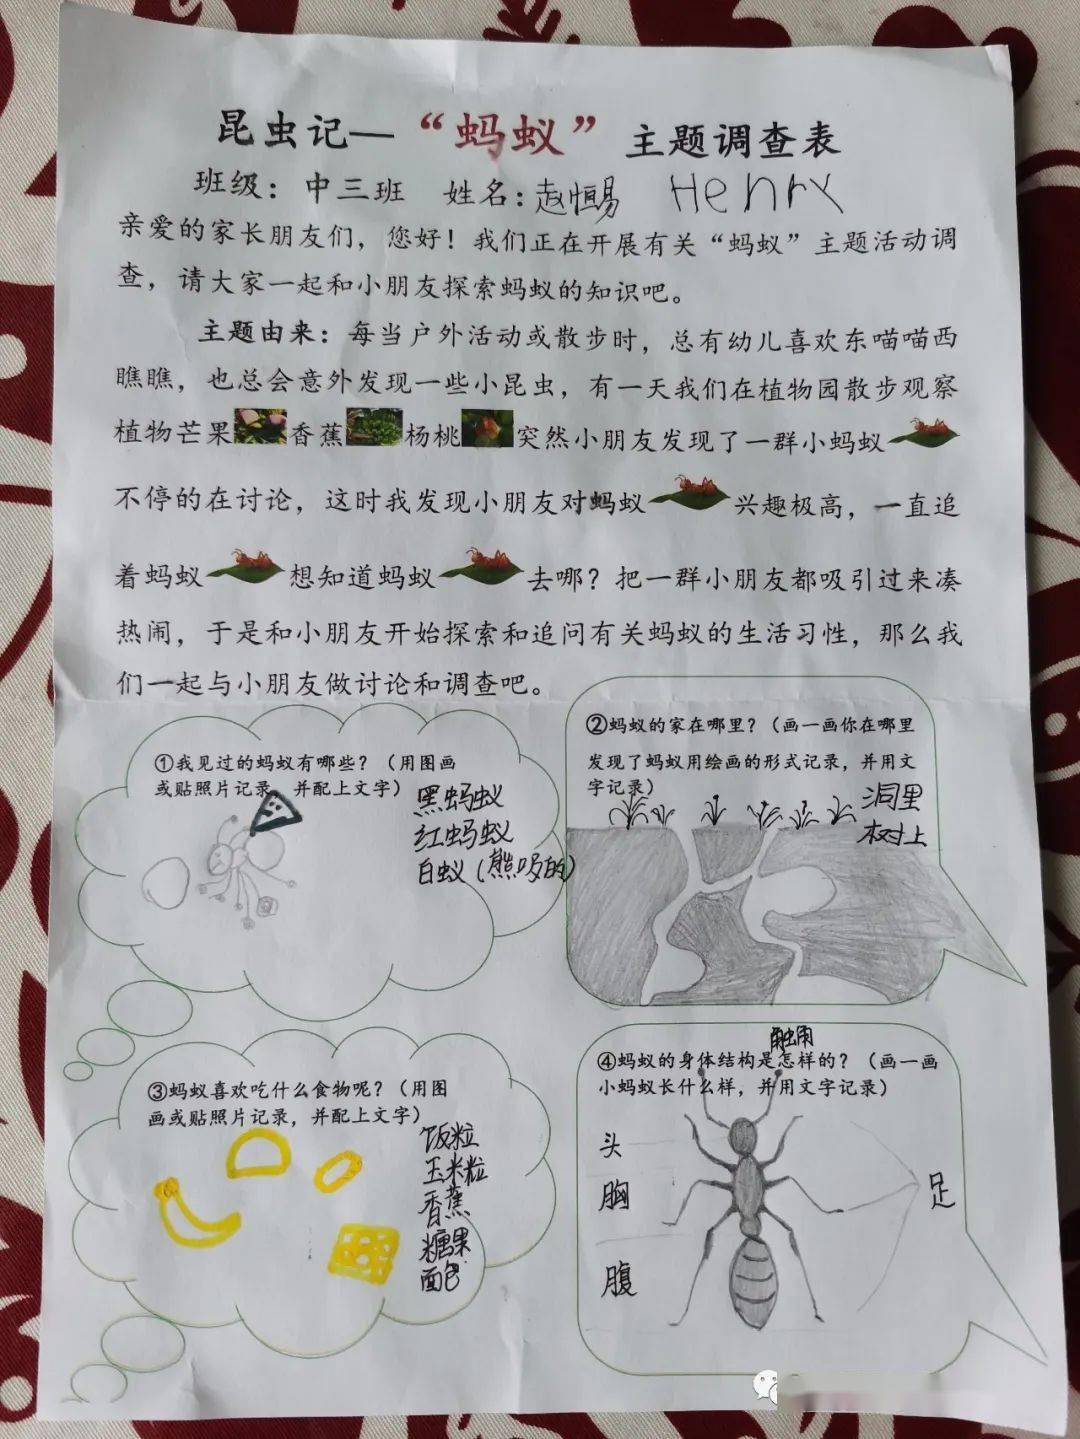 昆虫记—“蚂蚁”主题调查表
班级：中三班 姓名：赵恒易 Henry
亲爱的家长朋友们，您好！我们正在开展有关“蚂蚁”主题活动调
查，请大家一起和小朋友探索蚂蚁的知识吧。
主题由来：每当户外活动或散步时，总有幼儿喜欢东喵喵西
瞧瞧，也总会意外发现一些小昆虫，有一天我们在植物园散步观察
植物芒果香蕉杨桃突然小朋友发现了一群小蚂蚁
不停的在讨论，这时我发现小朋友对蚂蚁兴趣极高，一直追
着蚂蚁想知道蚂蚁去哪？把一群小朋友都吸引过来凑
热闹，于是和小朋友开始探索和追问有关蚂蚁的生活习性，那么我
们一起与小朋友做讨论和调查吧。
①我见过的蚂蚁有哪些？（用图画
或贴照片记录，并配上文字）
黑蚂蚁
红蚂蚁
白蚁（熊吸的）
②蚂蚁的家在哪里？（画一画你在哪里
发现了蚂蚁用绘画的形式记录，并用文
字记录）
洞里
树上
③蚂蚁喜欢吃什么食物呢？（用图
画或贴照片记录，并配上文字）
饭粒
玉米粒
香蕉
糖果
面包
④蚂蚁的身体结构是怎样的？（画一画
小蚂蚁长什么样，并用文字记录）
触角
头
胸
腹
足